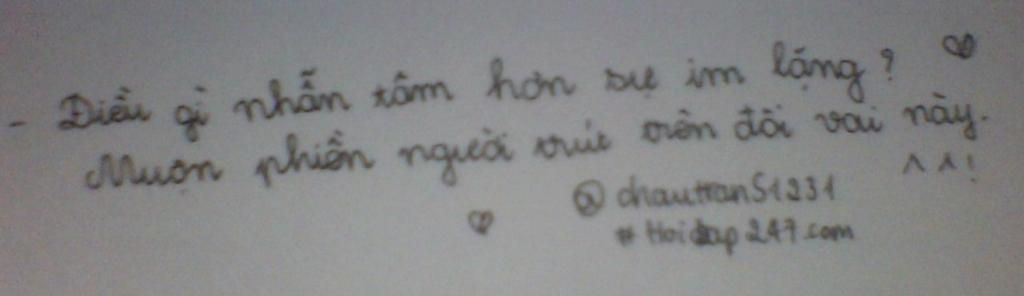 - Điều gì nhẫn tâm hơn sự im lặng?
Muộn phiền người trút trên đôi vai này.
^ ^!
@chautran51231
#Hoidap247.com